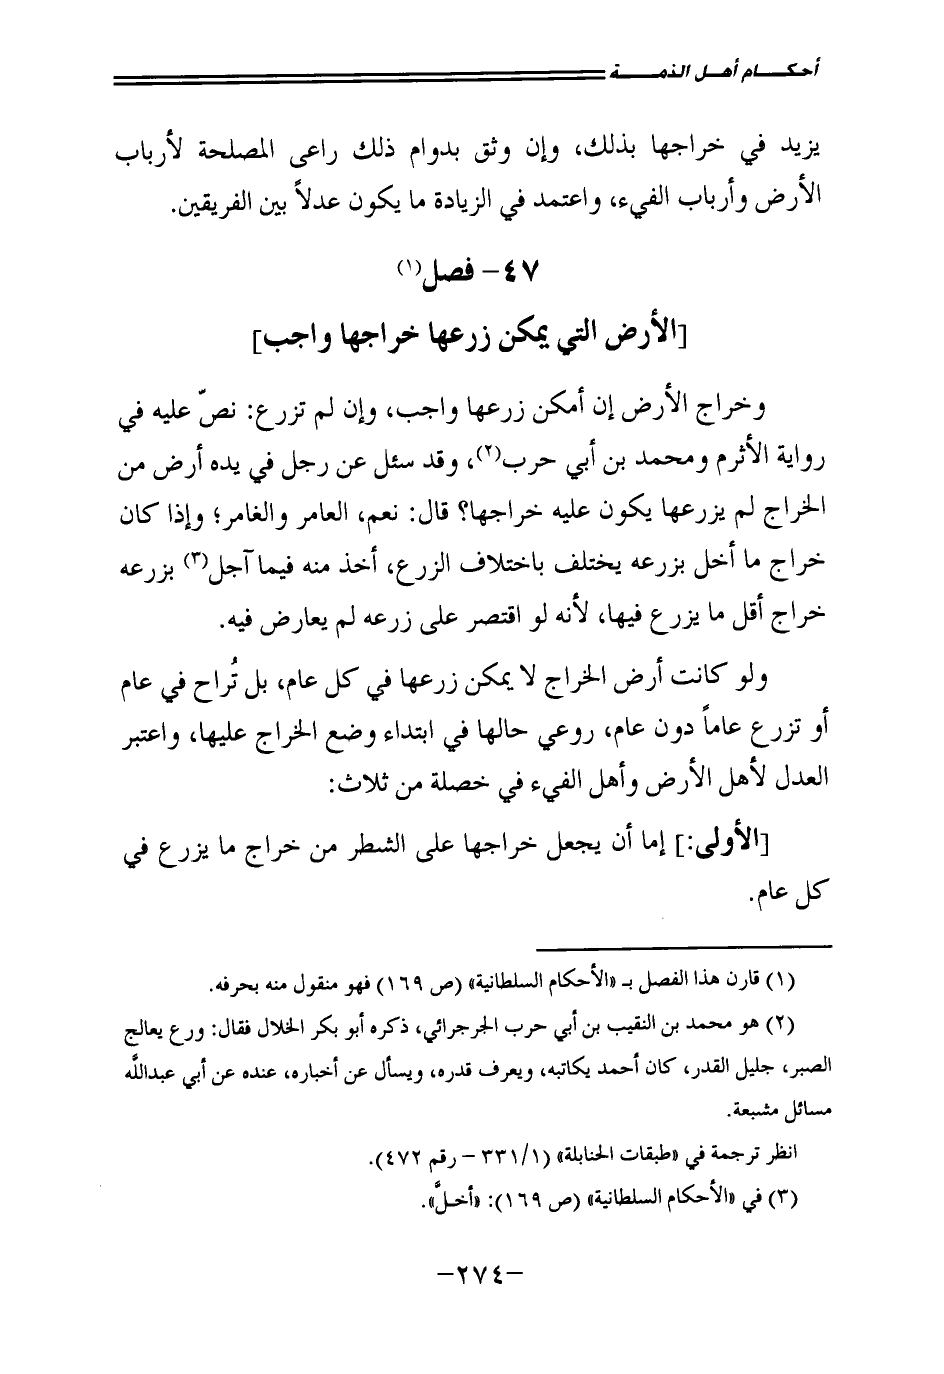 أحكـــام أهـل الذمــــة
يزيد في خراجها بذلك، وإن وثق بدوام ذلك راعى المصلحة لأرباب
الأرض وأرباب الفيء، واعتمد في الزيادة ما يكون عدلاً بين الفريقين.
٤٧- فصل(١)
[الأرض التي يمكن زرعها خراجها واجب]
وخراج الأرض إن أمكن زرعها واجب، وإن لم تزرع: نصّ عليه في
رواية الأثرم ومحمد بن أبي حرب(٢)، وقد سئل عن رجل في يده أرض من
الخراج لم يزرعها يكون عليه خراجها؟ قال: نعم، العامر والغامر؛ وإذا كان
خراج ما أخل بزرعه يختلف باختلاف الزرع، أخذ منه فيما آجل(٣) بزرعه
خراج أقل ما يزرع فيها، لأنه لو اقتصر على زرعه لم يعارض فيه.
ولو كانت أرض الخراج لا يمكن زرعها في كل عام، بل تُراح في عام
أو تزرع عاماً دون عام، روعي حالها في ابتداء وضع الخراج عليها، واعتبر
العدل لأهل الأرض وأهل الفيء في خصلة من ثلاث:
[الأولى:] إما أن يجعل خراجها على الشطر من خراج ما يزرع في
كل عام.
(١) قارن هذا الفصل بـ «الأحكام السلطانية» (ص ١٦٩) فهو منقول منه بحرفه.
(٢) هو محمد بن النقيب بن أبي حرب الجرجرائي، ذكره أبو بكر الخلال فقال: ورع يعالج
الصبر، جليل القدر، كان أحمد يكاتبه، ويعرف قدره، ويسأل عن أخباره، عنده عن أبي عبدالله
مسائل مشبعة.
انظر ترجمة في «طبقات الحنابلة» (٣٣١/١ - رقم ٤٧٢).
(٣) في «الأحكام السلطانية» (ص ١٦٩): «أخلَّ».
-٢٧٤-